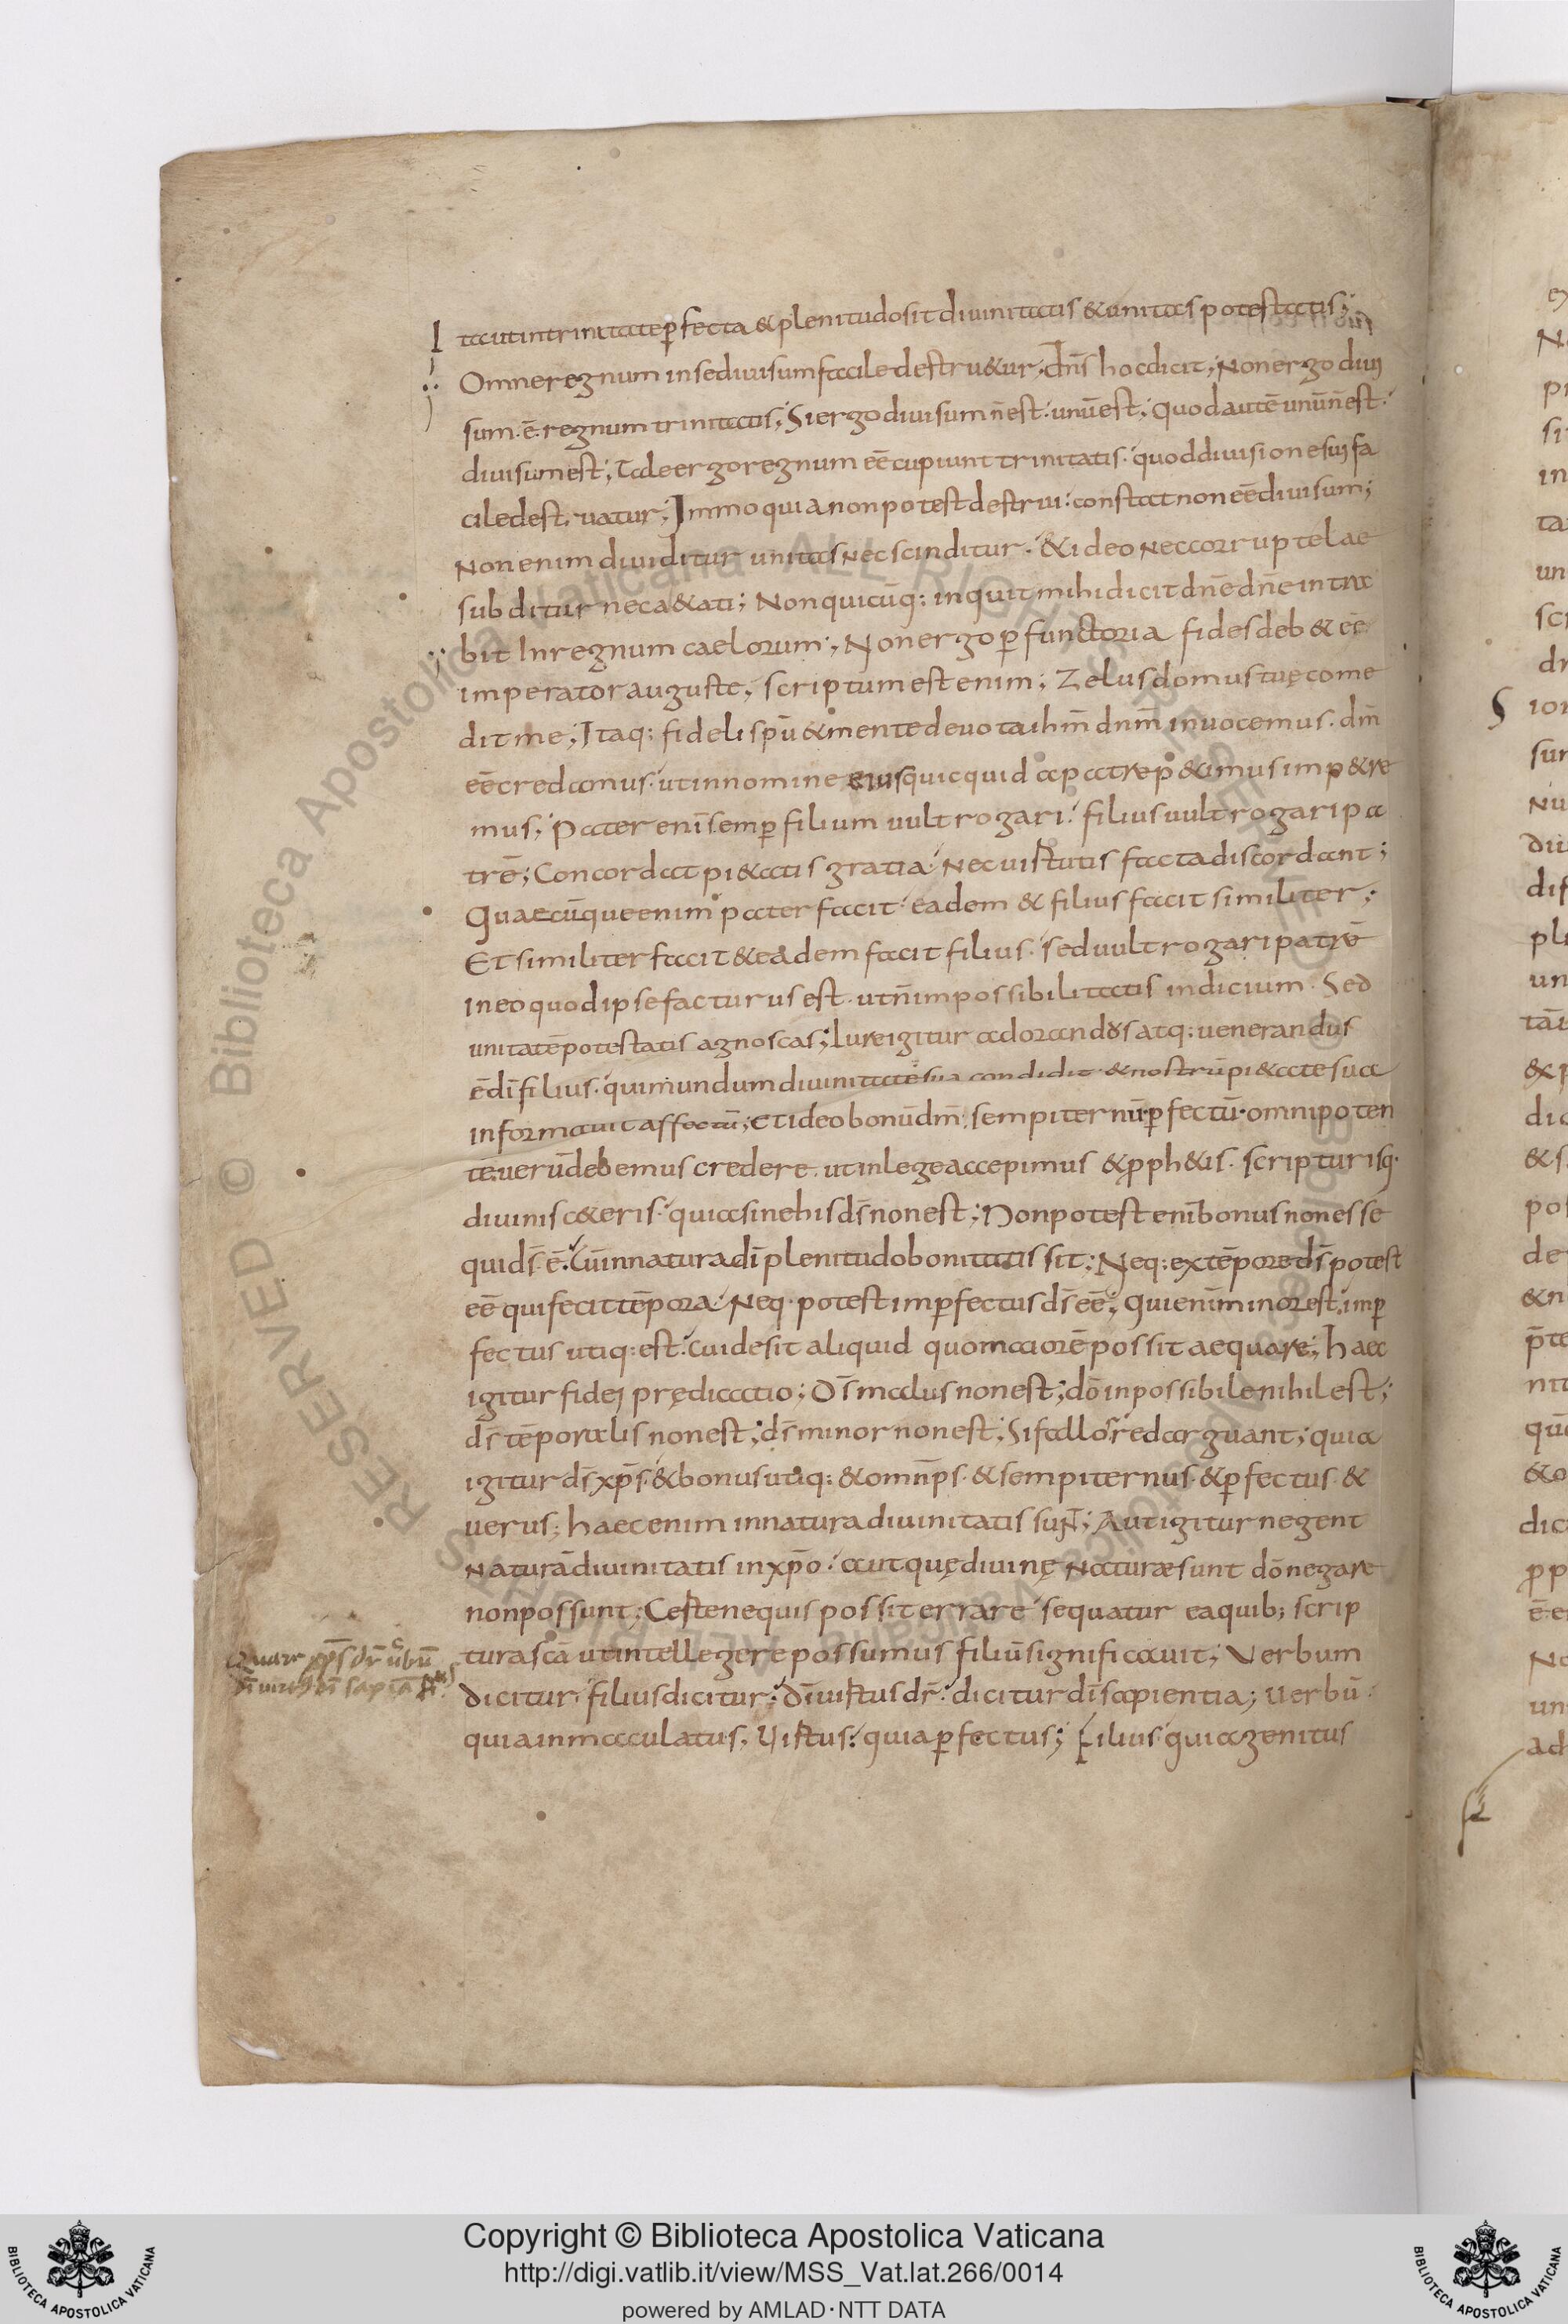 Ita ut in trinitate ꝑfecta & plenitudo sit diuinitatis & unitas potestatis;
Omne regnum in se diuisum facile destru&ur; dn̄s hoc dicit; Non ergo diui
sum ē regnum trinitatis; Si ergo diuisum n̄ est. unū est; Quod autē unū n̄ est.
diuisum est; Tale ergo regnum eē cupiunt trinitatis. quod diuisione sui fa
cile destruatur; Immo quia non potest destrui. constat non eē diuisum;
Non enim diuiditur unitas nec scinditur. & ideo nec corruptelae
subditur nec a&ati; Non quicūq: inquit mihi dicit dn̄e dn̄e intra
bit In regnum caelorum; Non ergo ꝑfunctoria fides deb& eē
imperator auguste; scriptum est enim; Zelus domus tuę come
dit me; Itaq: fideli sp̄u & mente deuota ih̄m dn̄m inuocemus. dm̄
eē credamus. ut in nomine eius quicquid a patre p&imus imp&re
mus; Pater enī semꝑ filium uult rogari. filius uult rogari pa
trē; Concordat pi&atis gratia. Nec uirtutis facta discordant;
Quaecūque enim pater facit. eadem & filius facit similiter;
Et similiter facit & eadem facit filius. sed uult rogari patrē
in eo quod ipse facturus est. ut n̄ impossibilitatis indicium. Sed
unitatē potestatis agnoscas; Iure igitur adorandus atq: uenerandus
ē dī filius. qui mundum diuinitate sua condidit & nostrū pi&ate sua
informauit affectū; Et ideo bonū dm̄. sempiternū. ꝑfectū. omnipoten
tē. uerū debemus credere. ut in lege accepimus & ꝓph&is. scripturisq.
diuinis c&eris. quia sine his ds̄ non est; Non potest enī bonus non esse
qui ds̄ ē. Cū in natura dī plenitudo bonitatis sit; Neq: ex tēpore ds̄ potest
eē qui fecit tēpora. Neq. potest imꝑfectus ds̄ eē; Qui enīm minor est. imꝑ
fectus utiq: est. cui desit aliquid quo maiorē possit aequare; haec
igitur fidei prędicatio; Ds̄ malus non est; dō inpossibile nihil est;
ds̄ tēporalis non est; ds̄ minor non est; Si fallor redarguant; quia
igitur ds̄ xp̄s. & bonus utiq: & omn̄ps. & sempiternus. & ꝑfectus. &
uerus; haec enim in natura diuinitatis suN̄; Aut igitur negent
Naturā diuinitatis in xp̄o. aut quę diuinę Naturae sunt dō negare
non possunt; Certe ne quis possit errare sequatur ea quib; scrip
tura scā ut intellegere possumus filiū significauit; Verbum
dicitur. filius dicitur; Dī uirtus dr̄. dicitur dī sapientia; Uerbū.
quia inmaculatus. Uirtus. quia ꝑfectus; Filius quia genitus
Quare xp̄s dr̄ uerbū
Copyright © Biblioteca Apostolica Vaticana
http://digi.vatlib.it/view/MSS_Vat.lat.266/0014
powered by AMLAD·NTT DATA